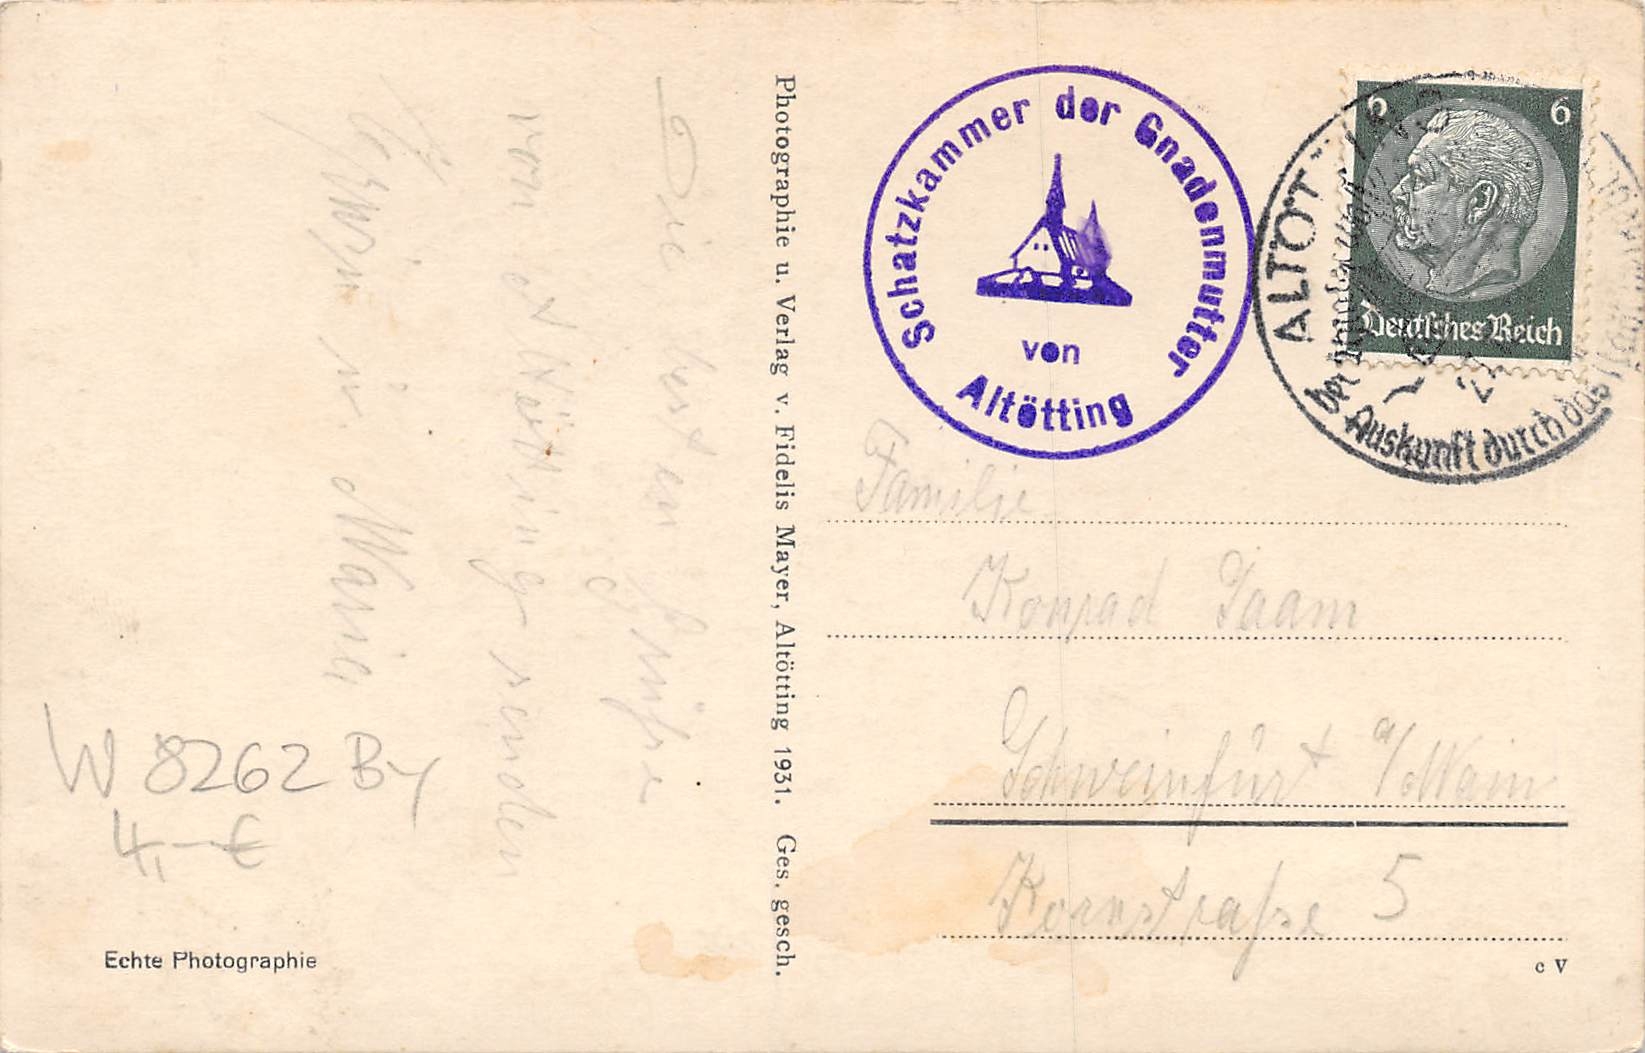 Die besten Grüße
von Altötting senden
und Marie
W 8262 By
4,-- €
Echte Photographie
Photographie u. Verlag v. Fidelis Mayer, Altötting 1931. Ges. gesch.
Schatzkammer der Gnadenmutter
von
Altötting
6 6
Deutsches Reich
ALTÖTTING
Auskunft durch das
Familie
Konrad
Schweinfurt a/Main
Kornstraße 5
c V